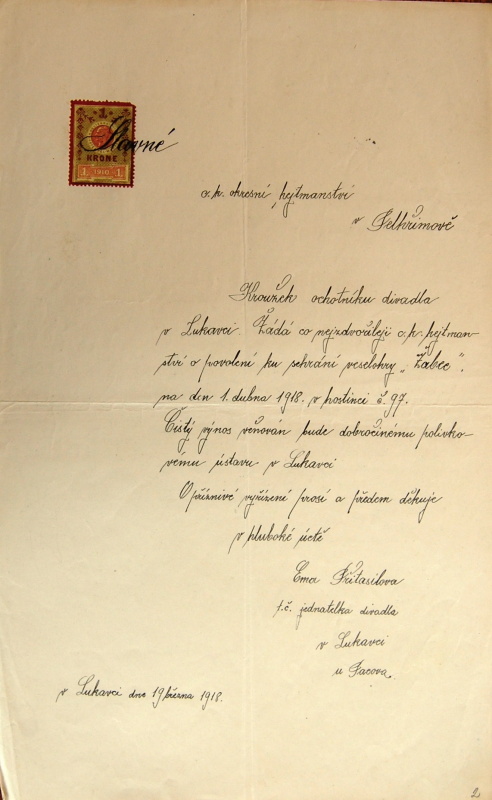 1
Slavné
KRONE
1 1910 1
c. k. okresní hejtmanství
v Pelhřimově
Kroužek ochotníku divadla
v Lukavci. Žádá co nejzdvořileji c. k. hejtman-
ství o povolení ku sehrání veselohry „Žabec".
na den 1. dubna 1918. v hostinci č. 97.
Čistý výnos věnován bude dobročinému polivko-
vému ústavu v Lukavci
O příznivé vyřízení prosí a předem děkuje
v hluboké úctě
Ema Přitasilova
t. č. jednatelka divadla
v Lukavci
u Pacova.
v Lukavci dne 19 března 1918.
2